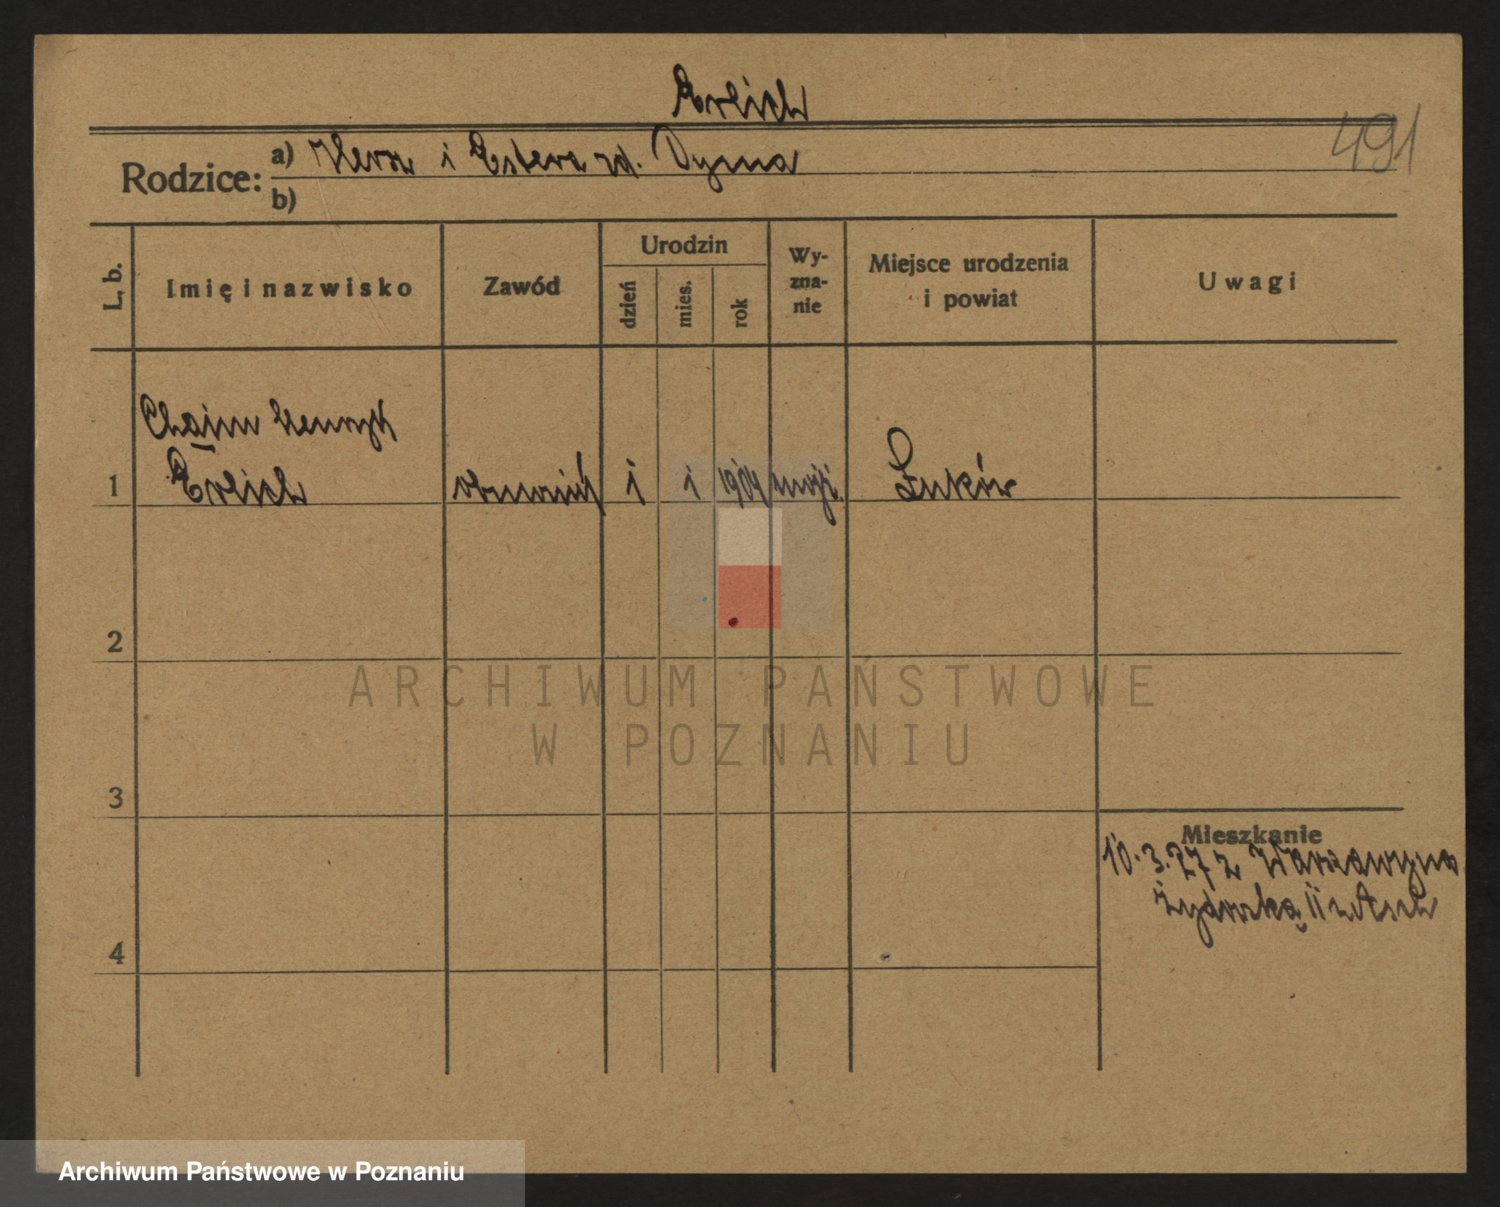 Erlich
491
Rodzice: a) Hersz i Estera zd. Dyma
b)
L. b.
Imię i nazwisko
Zawód
Urodzin
dzień
mies.
rok
Wy-
zna-
nie
Miejsce urodzenia
i powiat
Uwagi
Chaim Henryk
1 Erlich 1 1 1904 mojż. Łuków
2
3
4
Mieszkanie
10.3.27 z Warszawy na
Żydowską 11
ARCHIWUM PAŃSTWOWE
W POZNANIU
Archiwum Państwowe w Poznaniu